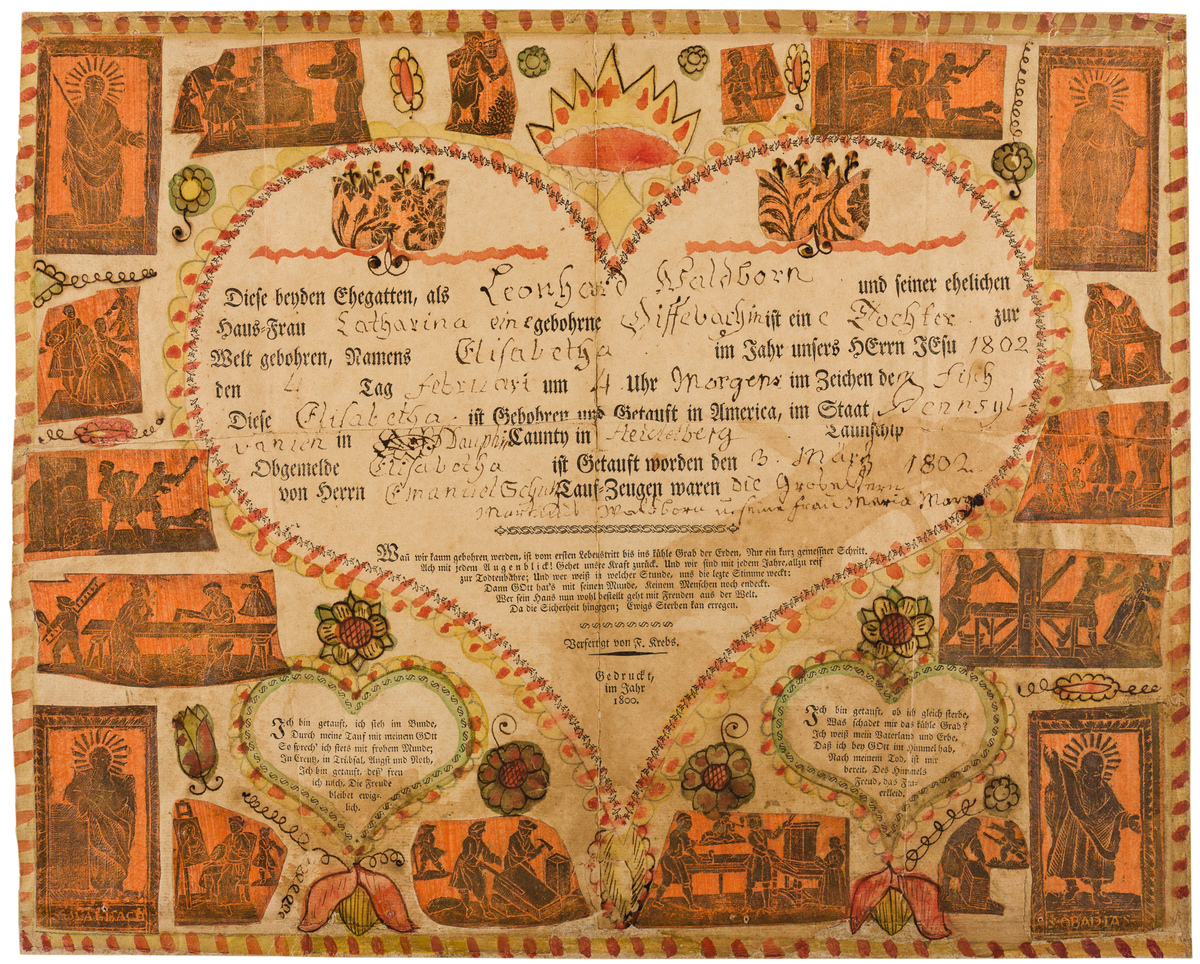 Diese beyden Ehegatten, als Leonhard Waldborn und seiner ehelichen
Haus-Frau Catharina eine gebohrne ist eine Tochter zur
Welt gebohren, Namens Elisabetha im Jahr unsers HErrn JEsu 1802
den 4 Tag februari um 4 Uhr Morgens im Zeichen der Fisch
Diese Elisabetha ist Gebohren und Getauft in America, im Staat Pennsyl-
vanien in Dauphin Caunty in Heidelberg Taunschip
Obgemelde Elisabetha ist Getauft worden den 3. Märtz 1802
von Herrn Emanuel Schultz Tauf-Zeugen waren die Großeltern
Waldborn u. seine frau Maria
Wañ wir kaum gebohren werden, ist vom ersten Lebenstritt bis ins kühle Grab der Erden, Nur ein kurz gemeßner Schritt.
Ach mit jedem Augenblick! Gehet unsre Kraft zurück. Und wir sind mit jedem Jahre, allzu reif
zur Todtenbahre; Und wer weiß in welcher Stunde, uns die lezte Stimme weckt:
Dann GOtt hat's mit seinen Munde, Keinem Menschen noch endeckt.
Wer sein Haus nun wohl bestellt geht mit Freuden aus der Welt.
Da die Sicherheit hingegen; Ewigs Sterben kan erregen.
Verfertigt von F. Krebs.
Gedruckt,
im Jahr
1800.
Ich bin getauft, ich steh im Bunde,
Durch meine Tauf mit meinem GOtt
So sprech' ich stets mit frohem Munde;
In Creutz, in Trübsal, Angst und Noth,
Ich bin getauft, deß' freu
ich mich, Die Freude
bleibet ewig-
lich.
Ich bin getauft, ob ich gleich sterbe,
Was schadet mir das kühle Grab?
Ich weiß mein Vaterland und Erbe,
Daß ich bey GOtt im Himmel hab,
Nach meinem Tod, ist mir
bereit, Des Himmels
Freud, das Fey-
erkleid.
OBADIA